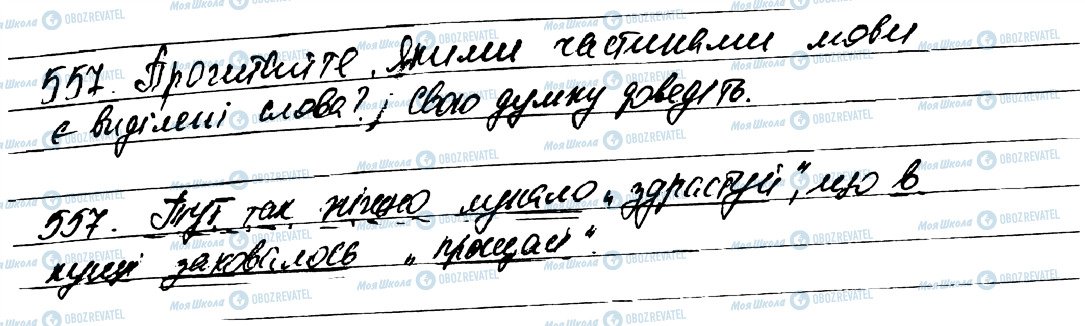 557. Прочитайте. Якими частинами мови
є виділені слова? ; Свою думку доведіть.
557. Тут так ніжно лунало „здрастуй“, що в
кущі заховалось „прощай“.